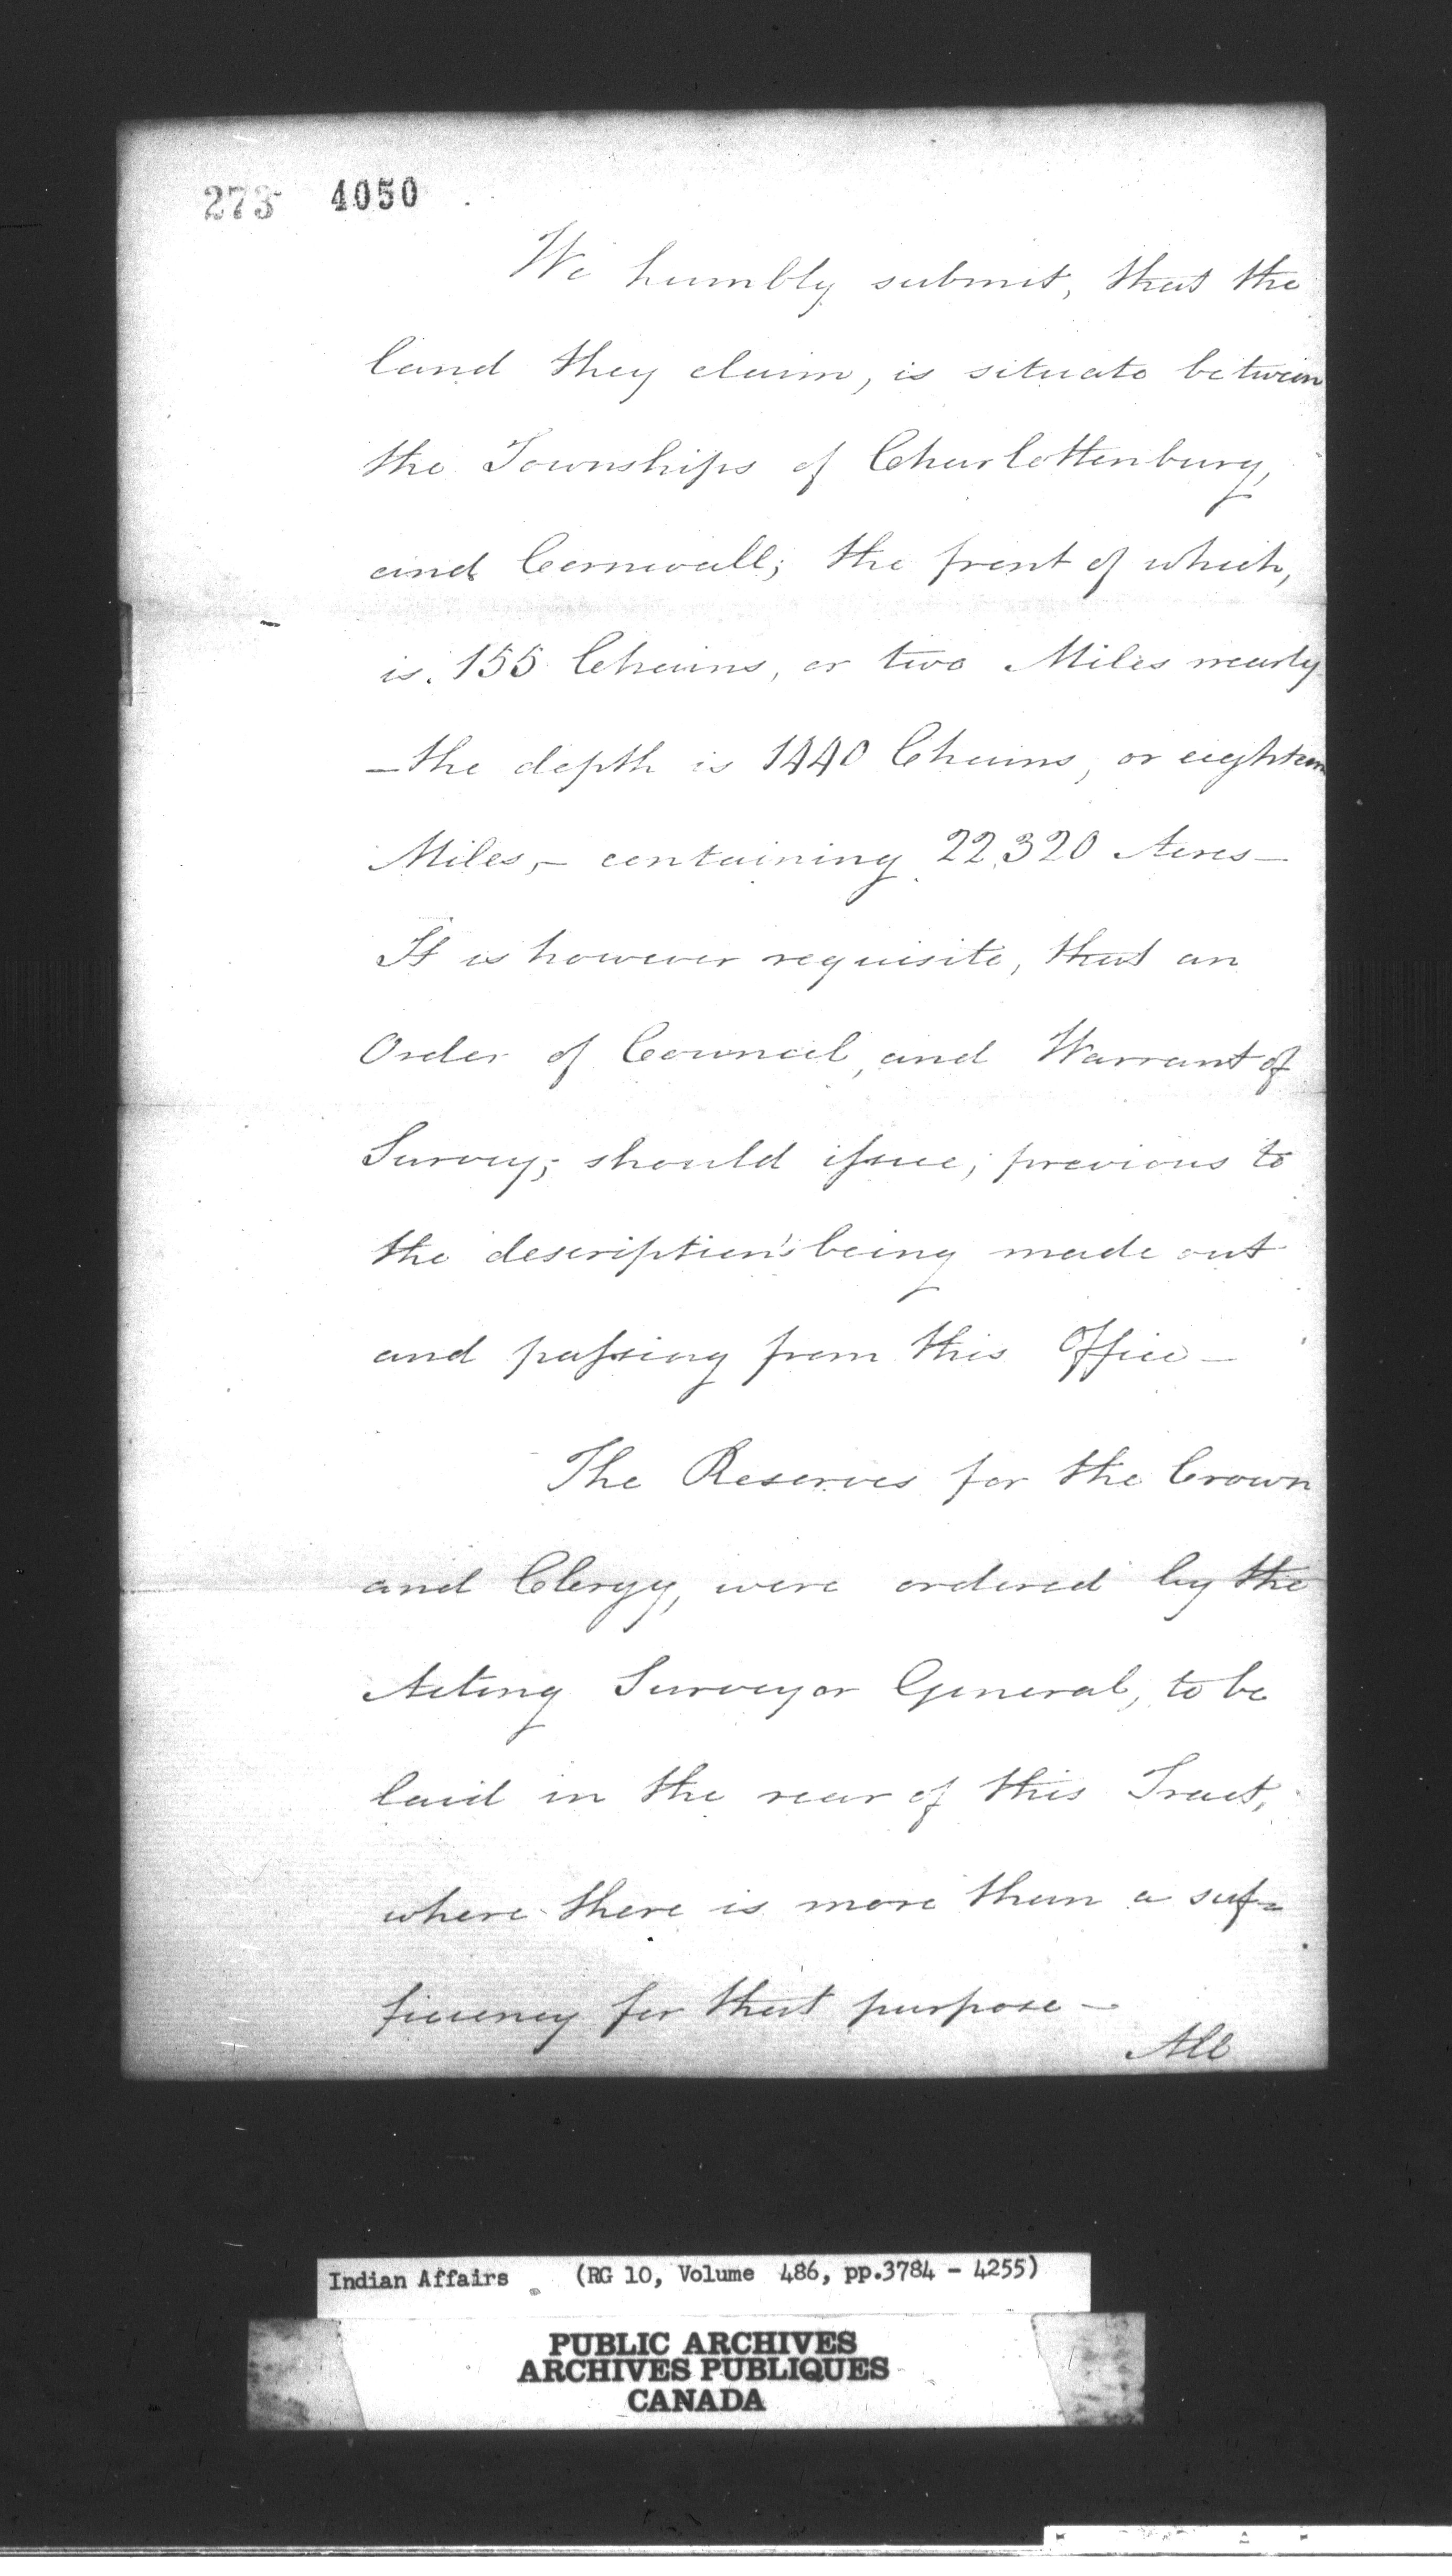 273 4050
We humbly submit, that the
land they claim, is situate between
the Townships of Charlottenburg,
and Cornwall; the front of which,
is 155 Chains, or two Miles nearly
– the depth is 1440 Chains, or eighteen
Miles, – containing 22,320 Acres –
It is however requisite, that an
Order of Council, and Warrant of
Survey; should issue; previous to
the description's being made out
and passing from this Office –
The Reserves for the Crown
and Clergy, were ordered by the
Acting Surveyor General, to be
laid in the rear of this Tract,
where there is more than a suf=
ficiency for that purpose –
All
Indian Affairs (RG 10, Volume 486, pp.3784 - 4255)
PUBLIC ARCHIVES
ARCHIVES PUBLIQUES
CANADA